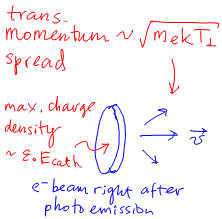 trans.
momentum ~ √(mₑkT⊥)
spread
max. charge
density
~ ε₀E_cath
v⃗
e⁻ beam right after
photoemission